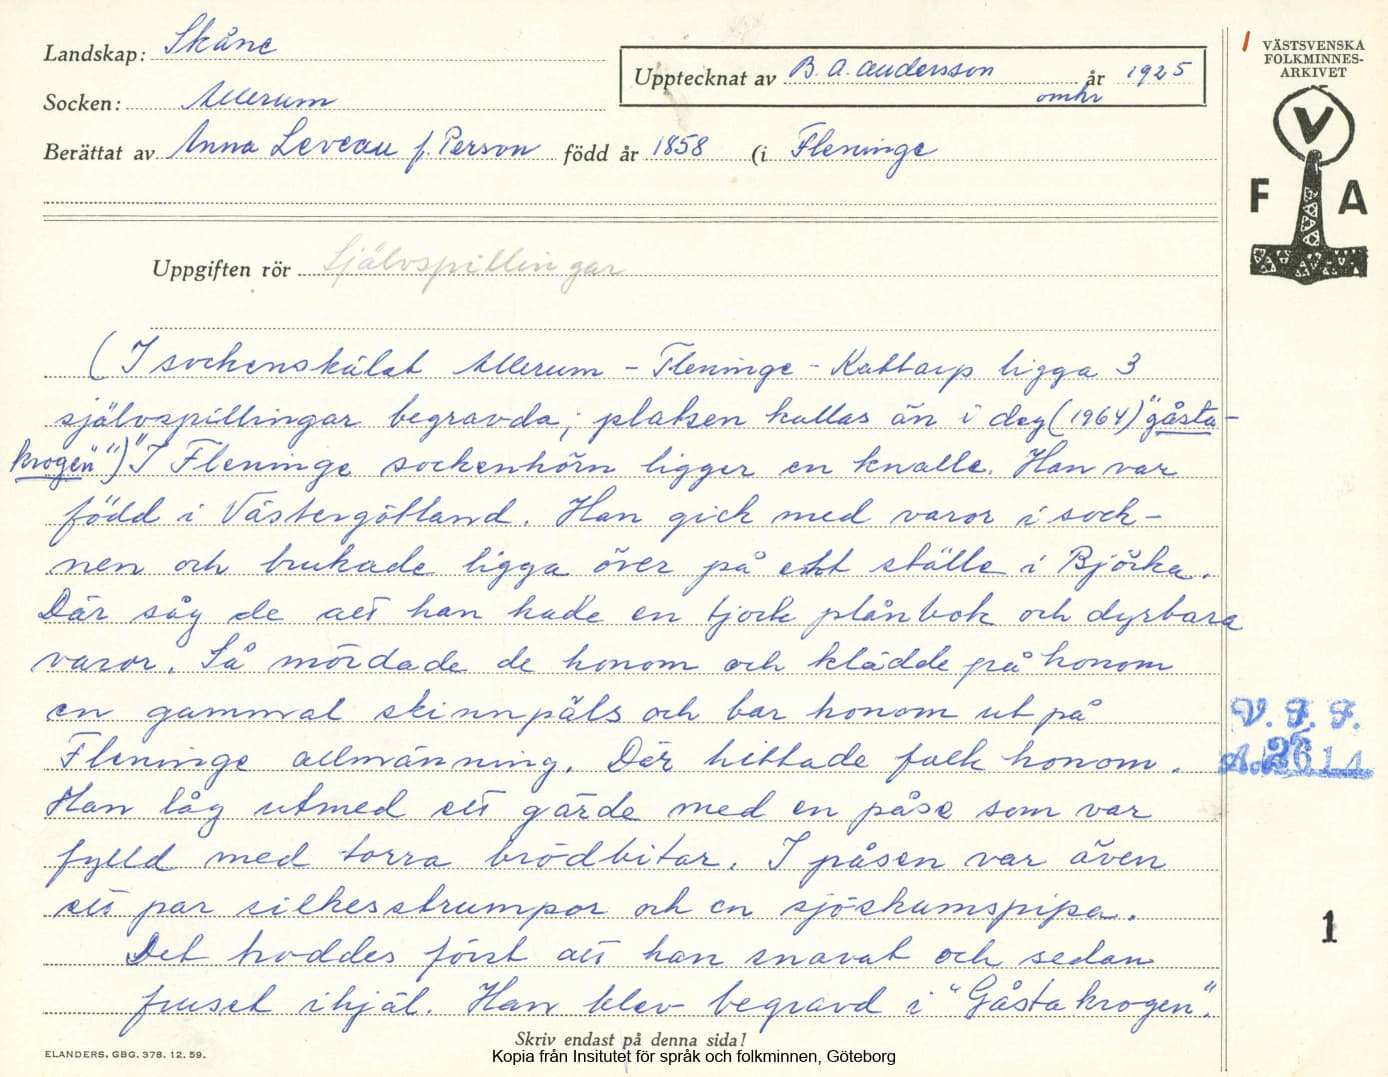 Landskap: Skåne
Socken: Allerum
Upptecknat av B. A. Andersson år 1925
omkr
Berättat av Anna Leveau f. Person född år 1858 (i Fleninge
1 VÄSTSVENSKA
FOLKMINNES-
ARKIVET
V
F A
Uppgiften rör Självspillingar
(I sockenskälet Allerum - Fleninge - Kattarp ligga 3
självspillingar begravda; platsen kallas än i dag (1964) "gåsta-
krogen") "I Fleninge sockenhörn ligger en knalle. Han var
född i Västergötland. Han gick med varor i sock-
nen och brukade ligga över på ett ställe i Björka.
Där såg de att han hade en tjock plånbok och dyrbara
varor. Så mördade de honom och klädde på honom
en gammal skinnpäls och bar honom ut på
Fleninge allmänning. Där hittade folk honom.
Han låg utmed ett gärde med en påse som var
fylld med torra brödbitar. I påsen var även
ett par silkesstrumpor och en sjöskumspipa.
Det troddes först att han snavat och sedan
fruset ihjäl. Han blev begravd i "Gåstakrogen".
V. F. F.
A. 2614
1
Skriv endast på denna sida!
ELANDERS, GBG. 378. 12. 59.
Kopia från Insitutet för språk och folkminnen, Göteborg